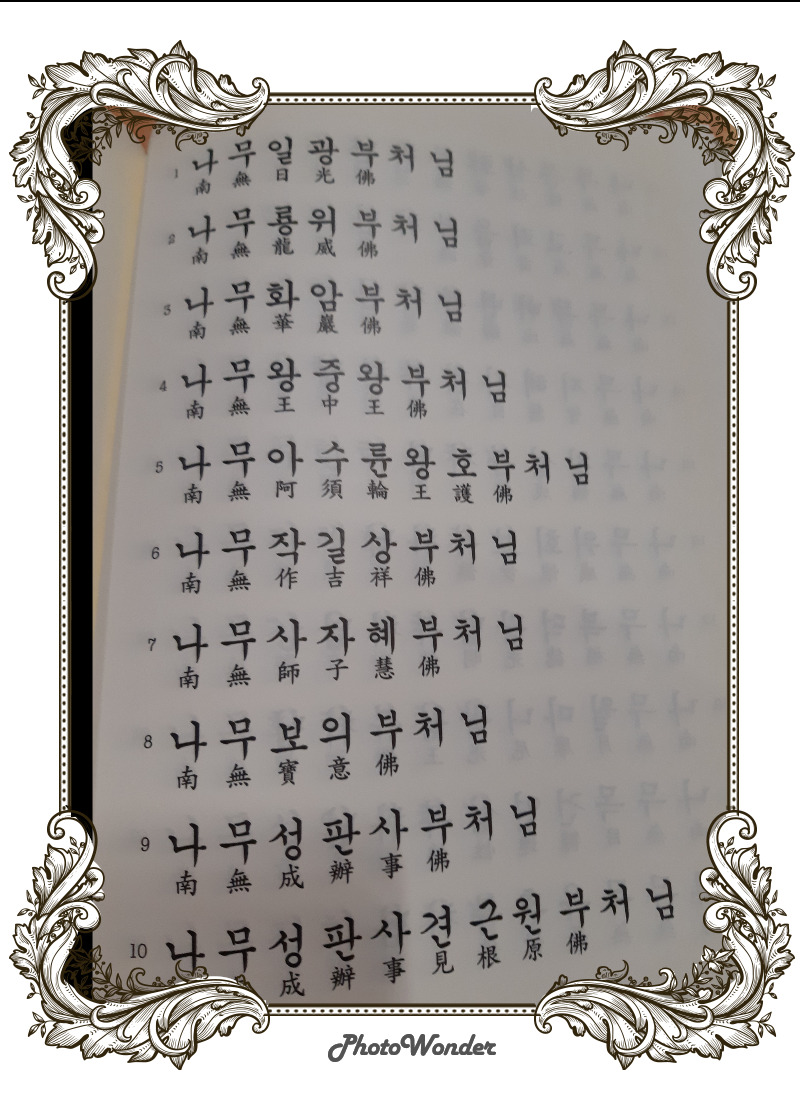 1 나무일광부처님
南無日光佛
2 나무룡위부처님
南無龍威佛
3 나무화암부처님
南無華巖佛
4 나무왕중왕부처님
南無王中王佛
5 나무아수륜왕호부처님
南無阿須輪王護佛
6 나무작길상부처님
南無作吉祥佛
7 나무사자혜부처님
南無師子慧佛
8 나무보의부처님
南無寶意佛
9 나무성판사부처님
南無成辦事佛
10 나무성판사견근원부처님
成辦事見根原佛
PhotoWonder